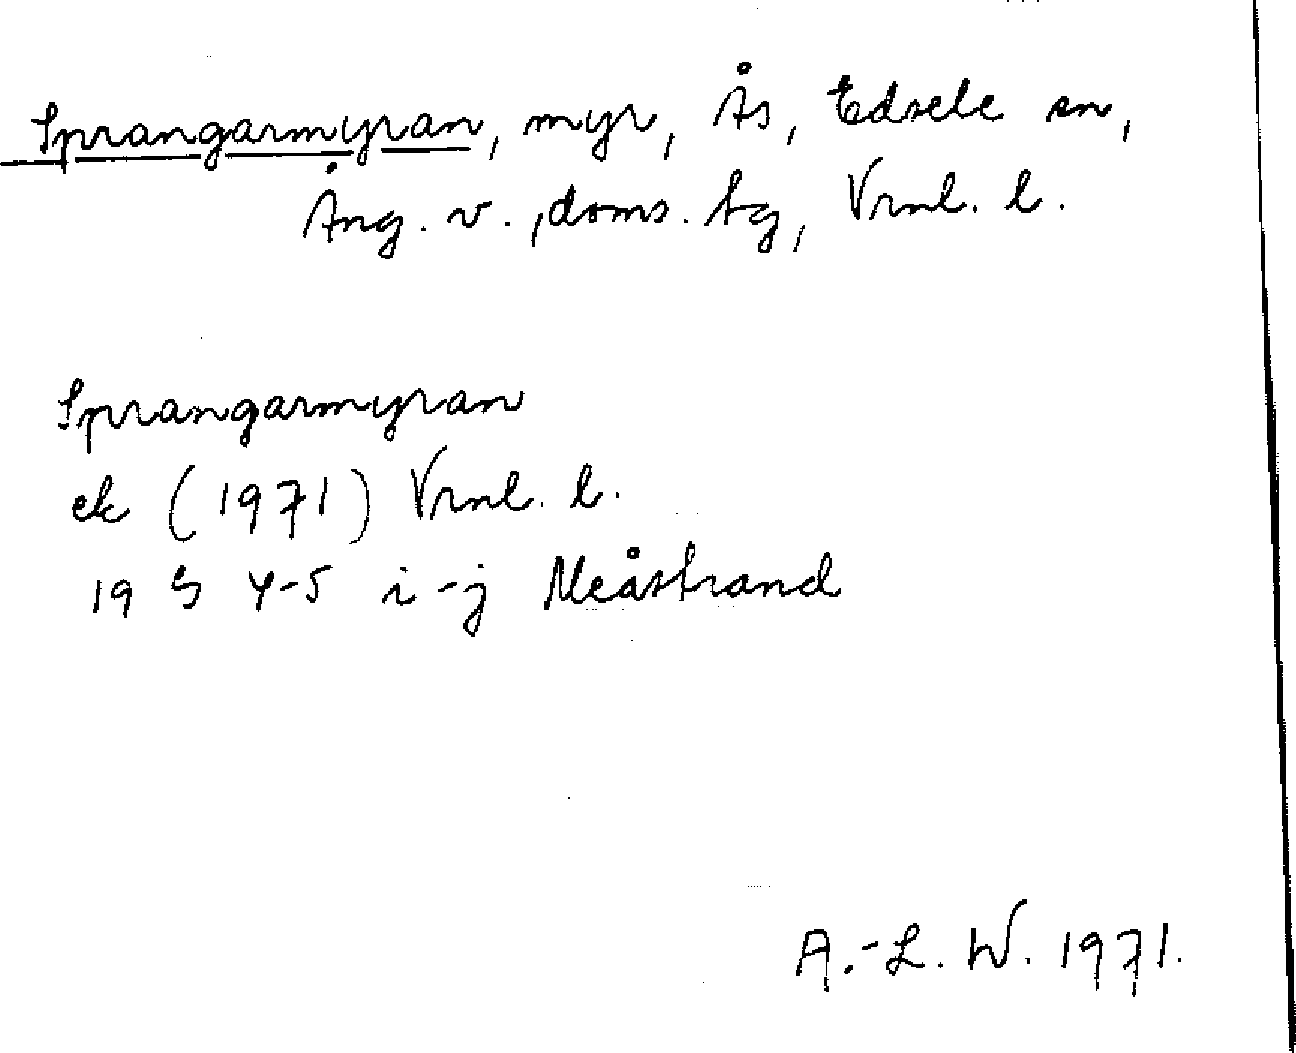 Sprangarmyran, myr, Ås, Edsele sn,
Ång. v., doms. tg, Vrnl. l.
Sprangarmyran
ek (1971) Vrnl. l.
19 G 4-5 i-j Meåstrand
A.-L. W. 1971.